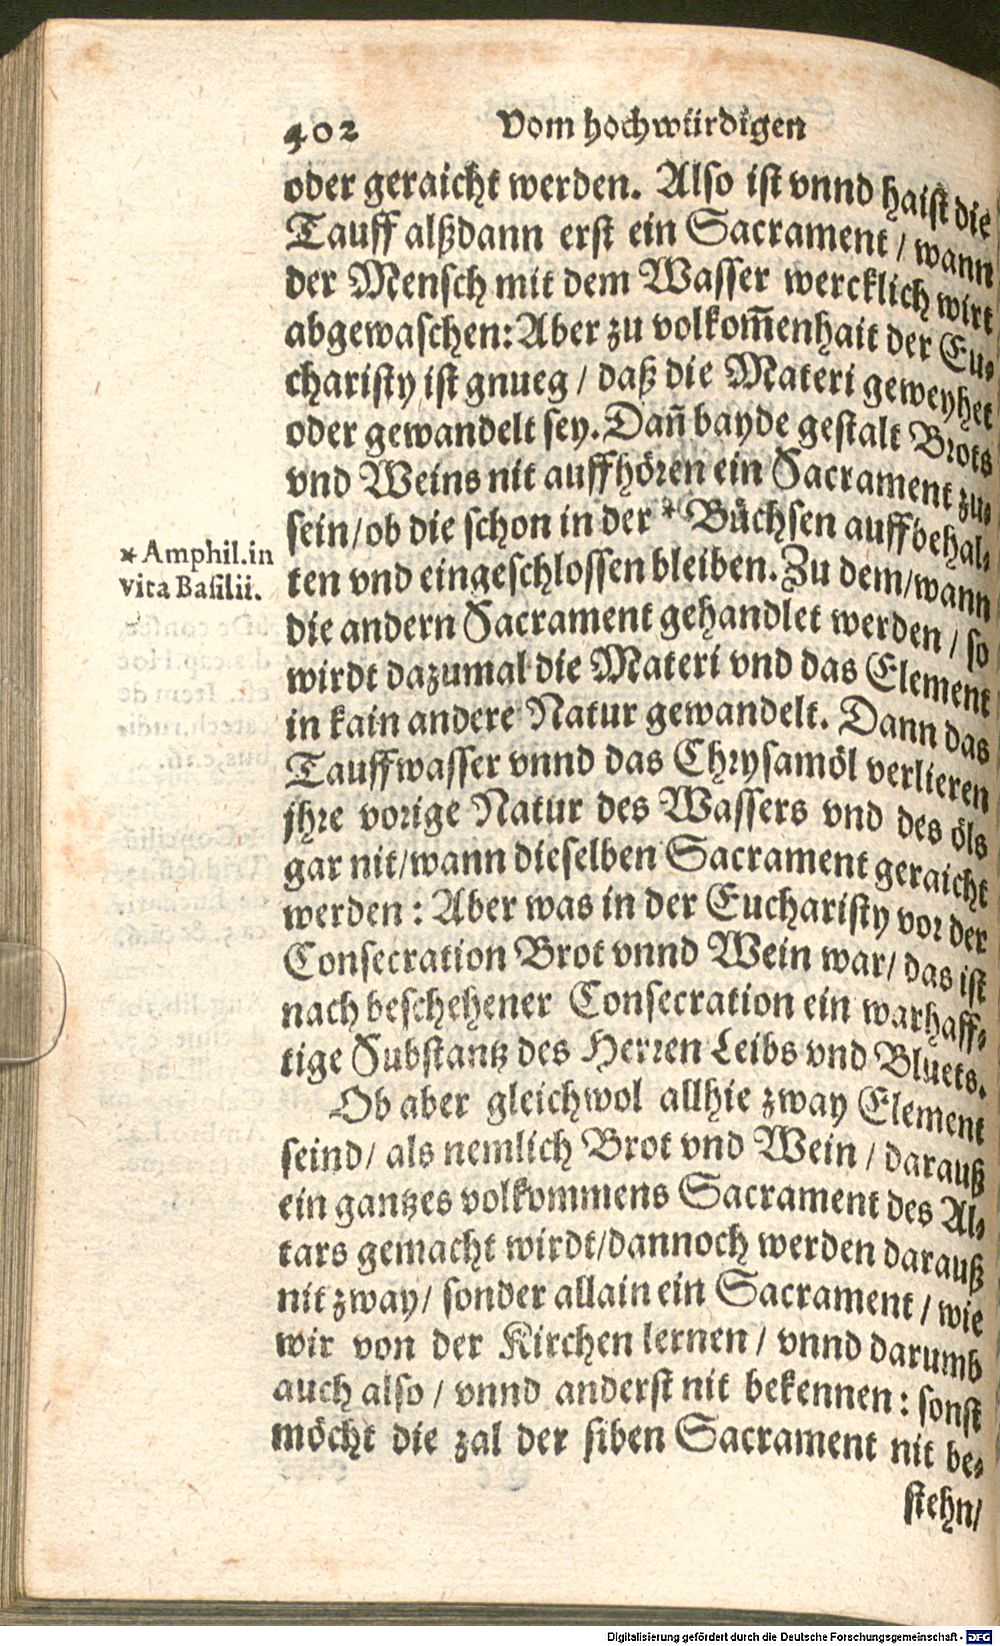 402 Vom hochwürdigen
oder geraicht werden. Also ist vnnd haist die
Tauff alßdann erst ein Sacrament / wann
der Mensch mit dem Wasser wercklich wirt
abgewaschen: Aber zu volkom̃enhait der Eu-
charisty ist gnueg / daß die Materi geweyhet
oder gewandelt sey. Dañ bayde gestalt Brots
vnd Weins nit auffhören ein Sacrament zu-
sein/ob die schon in der * Büchsen auffbehal-
*Amphil.in
vita Basilii.
ten vnd eingeschlossen bleiben. Zu dem/wann
die andern Sacrament gehandlet werden / so
wirdt dazumal die Materi vnd das Element
in kain andere Natur gewandelt. Dann das
Tauffwasser vnnd das Chrysamöl verlieren
jhre vorige Natur des Wassers vnd des öls
gar nit/wann dieselben Sacrament geraicht
werden : Aber was in der Eucharisty vor der
Consecration Brot vnnd Wein war/ das ist
nach beschehener Consecration ein warhaff-
tige Substantz des Herren Leibs vnd Bluets.
Ob aber gleichwol allhie zway Element
seind/ als nemlich Brot vnd Wein / darauß
ein gantzes volkommens Sacrament des Al-
tars gemacht wirdt/dannoch werden darauß
nit zway/ sonder allain ein Sacrament / wie
wir von der Kirchen lernen / vnnd darumb
auch also / vnnd anderst nit bekennen: sonst
möcht die zal der siben Sacrament nit be-
stehn/
Digitalisierung gefördert durch die Deutsche Forschungsgemeinschaft - DFG